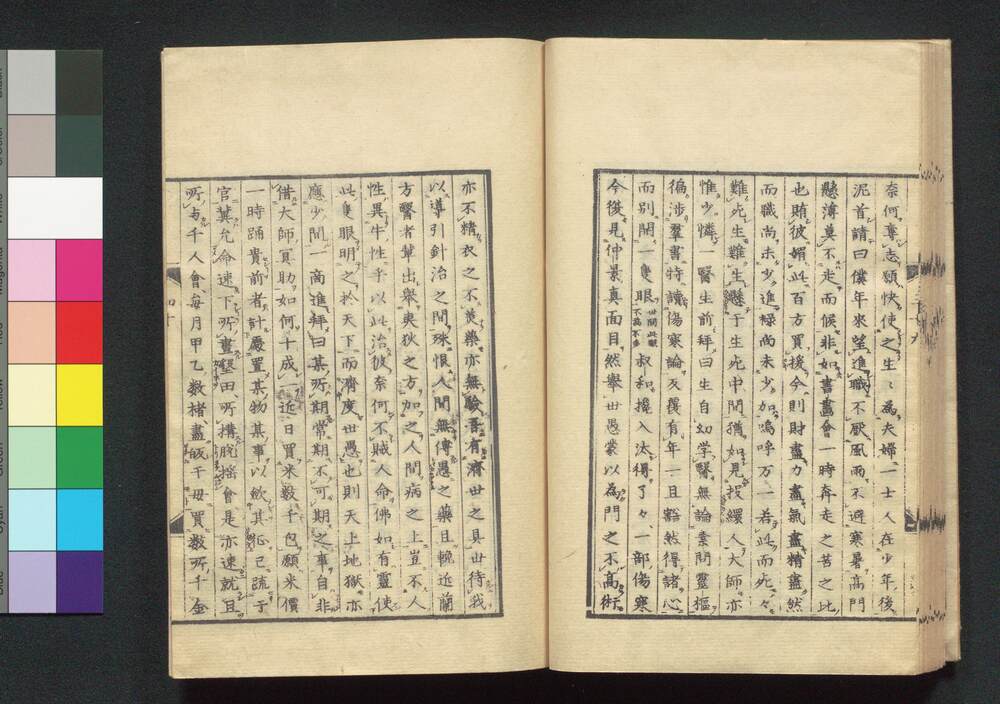 奈何奪志願快使之生々為夫婦一士人在少年後
泥首請曰僕年來望進職不厭風雨不避寒暑高門
懸薄莫不走而候非如書畫會一時奔走之苦之比
也賄彼媚此百方買援今則財盡力盡氣盡精盡然
而職尚未少進祿尚未少加嗚呼万一若此而死々
難死生難生懸于生死中間猶如見投繯人大師亦
惟少憐一醫生前拜曰生自幼学醫無論素問靈樞
徧涉群書特讀傷寒論反覆有年一旦豁然得諸心
而別開一隻眼世間此眼不為不多叔和攙入汰得了々一部傷寒
今復見仲景真面目然舉世愚蒙以為門之不高術
亦不精衣之不美藥亦無驗吾有濟世之具世待我
以導引針治之間殊恨人間無傳愚之藥且輓近蘭
方醫者輩出舉夷狄之方加之人間病之上豈不人
性異牛性乎以此治彼奈何不賊人命佛如有靈使
此隻眼明之於天下而濟度世愚也則天上地獄亦
應少間一商進拜曰某所期常期不可期之事自非
借大師冥助如何十成一近日買米數千包願米價
一時踊貴前者計嚴置某物某事以飲其
官冀允命速下所書墾田所搆脫搖會是亦速就且
所与千人會每月甲乙數楮盡皈干毋買數所千金